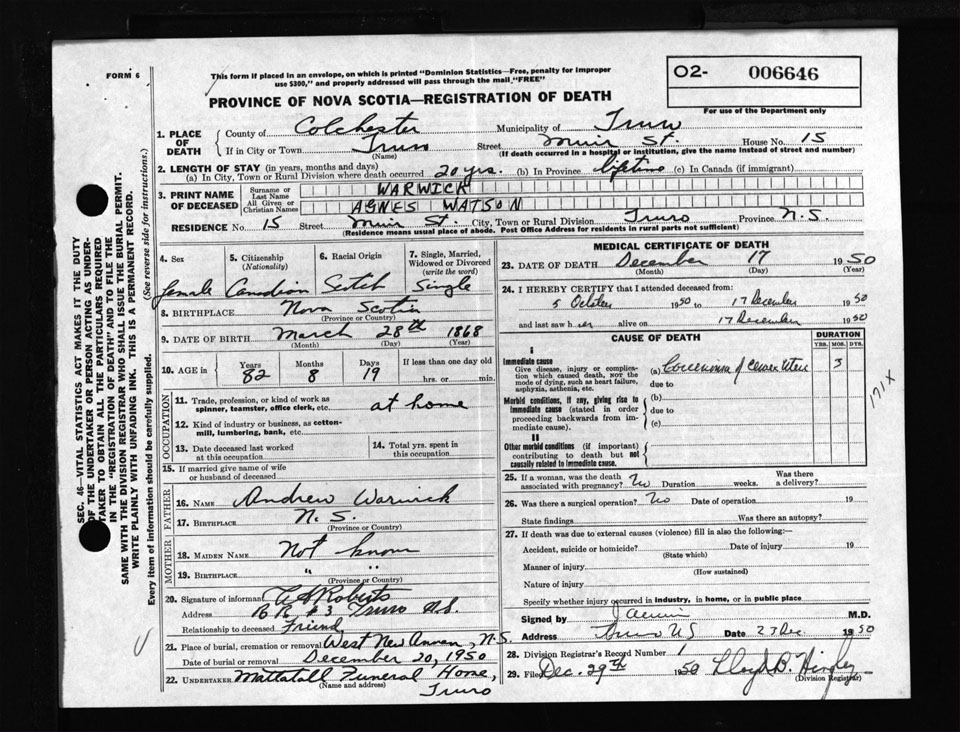 FORM 6
This form if placed in an envelope, on which is printed "Dominion Statistics—Free, penalty for improper
use $300," and properly addressed will pass through the mail "FREE"
PROVINCE OF NOVA SCOTIA—REGISTRATION OF DEATH
O2- 006646
For use of the Department only
1. PLACE OF DEATH
County of Colchester Municipality of Truro
If in City or Town Truro Street Muir St. House No. 15
(Name) (If death occurred in a hospital or institution, give the name instead of street and number)
2. LENGTH OF STAY (in years, months and days)
(a) In City, Town or Rural Division where death occurred 20 yrs. (b) In Province lifetime (c) In Canada (if immigrant)
3. PRINT NAME OF DECEASED
Surname or Last Name WARWICK
All Given or Christian Names AGNES WATSON
RESIDENCE No. 15 Muir St. City, Town or Rural Division Truro Province N.S.
(Residence means usual place of abode. Post Office Address for residents in rural parts not sufficient)
4. Sex
female
5. Citizenship
(Nationality)
Canadian
6. Racial Origin
Scotch
7. Single, Married, Widowed or Divorced
(write the word)
Single
8. BIRTHPLACE Nova Scotia
(Province or Country)
9. DATE OF BIRTH March 28th 1868
(Month) (Day) (Year)
10. AGE in Years 82 Months 8 Days 19 If less than one day old
hrs. or min.
OCCUPATION
11. Trade, profession, or kind of work as
spinner, teamster, office clerk, etc. at home
12. Kind of industry or business, as cotton-
mill, lumbering, bank, etc.
13. Date deceased last worked
at this occupation
14. Total yrs. spent in
this occupation
15. If married give name of wife
or husband of deceased
FATHER
16. NAME Andrew Warwick
17. BIRTHPLACE N.S.
(Province or Country)
MOTHER
18. MAIDEN NAME Not know
19. BIRTHPLACE " "
(Province or Country)
20. Signature of informant Roberts
Address R.R. #3 Truro N.S.
Relationship to deceased Friend
21. Place of burial, cremation or removal West New Annan, N.S.
Date of burial or removal December 20, 1950
22. UNDERTAKER Mattatall Funeral Home,
(Name and address) Truro
MEDICAL CERTIFICATE OF DEATH
23. DATE OF DEATH December 17 1950
(Month) (Day) (Year)
24. I HEREBY CERTIFY that I attended deceased from:
5 October 1950 to 17 December 1950
and last saw her alive on 17 December 1950
CAUSE OF DEATH
DURATION
YRS. MOS. DYS.
I
Immediate cause
Give disease, injury or complica-
tion which caused death, NOT the
mode of dying, such as heart failure,
asphyxia, asthenia, etc.
(a) Carcinoma of Cervix Uteri 3
due to
Morbid conditions, if any, giving rise to
immediate cause (stated in order
proceeding backwards from im-
mediate cause).
(b)
due to
(c)
II
Other morbid conditions (if important)
contributing to death but not
causally related to immediate cause.
171X
25. If a woman, was the death
associated with pregnancy? No Duration weeks. Was there
a delivery?
26. Was there a surgical operation? No Date of operation 19
State findings Was there an autopsy?
27. If death was due to external causes (violence) fill in also the following:—
Accident, suicide or homicide? Date of injury 19
(State which)
Manner of injury
(How sustained)
Nature of injury
Specify whether injury occurred in industry, in home, or in public place
Signed by M.D.
Address Truro N S Date 23 Dec. 1950
28. Division Registrar's Record Number 1
29. Filed Dec. 29th 1950 Lloyd B.
(Division Registrar)
SEC. 46—VITAL STATISTICS ACT MAKES IT THE DUTY
OF THE UNDERTAKER OR PERSON ACTING AS UNDER-
TAKER TO OBTAIN ALL THE PARTICULARS REQUIRED
IN THE "REGISTRATION OF DEATH" AND TO FILE THE
SAME WITH THE DIVISION REGISTRAR WHO SHALL ISSUE THE BURIAL PERMIT.
WRITE PLAINLY WITH UNFADING INK. THIS IS A PERMANENT RECORD.
Every item of information should be carefully supplied. (See reverse side for instructions.)